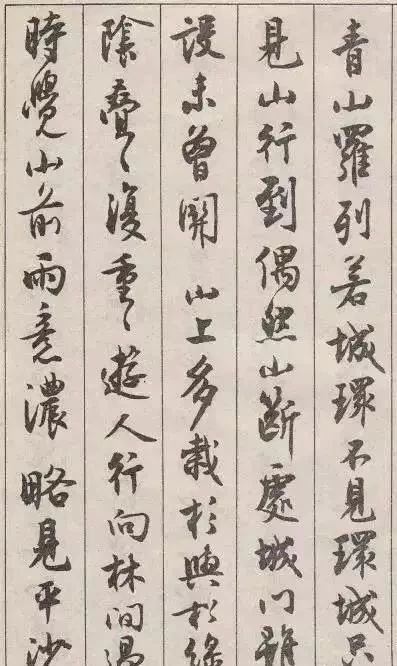 青山羅列若城環不見環城只
見山行到偶然山斷處城門雖
設未曾開 山上多栽杉與松綠
陰疊〻復重〻遊人行向林間過
時覺山前雨意濃 略見平沙